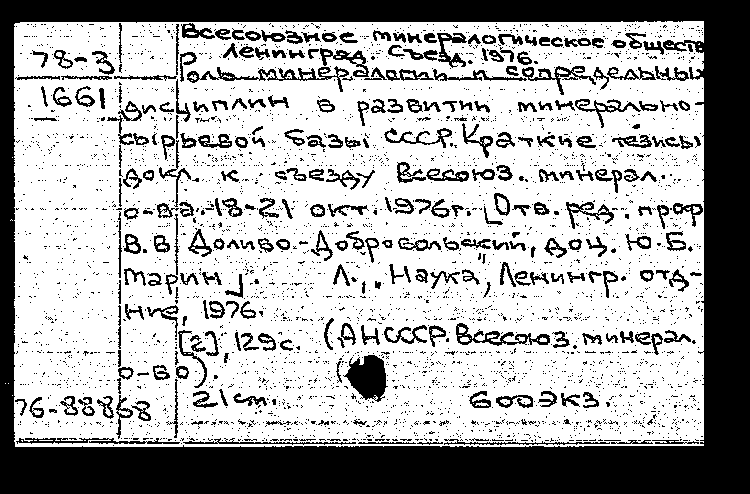 Всесоюзное минералогическое обществ
Ленинград. Съезд. 1976.
78-3
Роль минералогии и сопредельных
1661 дисциплин в развитии минерально-
сырьевой базы СССР. Краткие тезисы
докл. к съезду Всесоюз. минерал.
о-ва. 18-21 окт. 1976г. [Отв. ред. проф
В.В. Доливо-Добровольский, доц. Ю.Б.
Марин]. Л., „Наука", Ленингр. отд-
ние, 1976.
[2], 129с. (АНСССР. Всесоюз. минерал.
о-во).
76-88868 21см. 600экз.